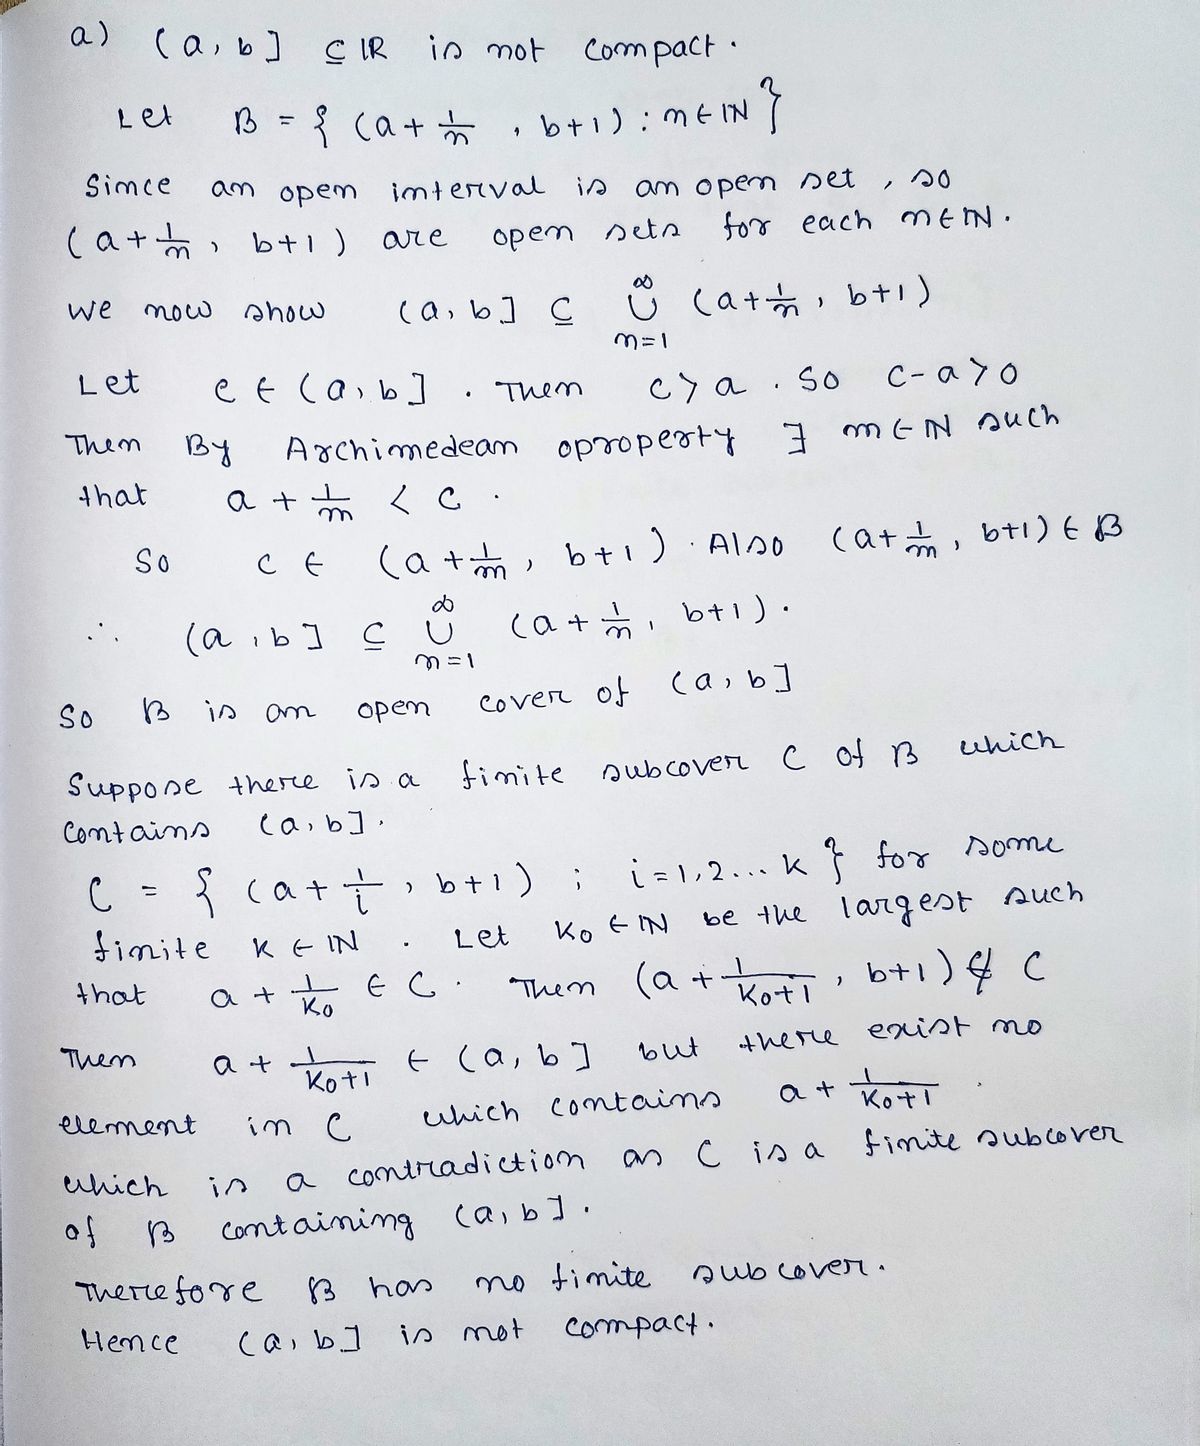 a) (a, b] ⊆ IR is not compact.
Let B = { (a + 1/n , b+1) : n ∈ IN }
Since an open interval is an open set, so
(a + 1/n , b+1) are open sets for each n ∈ IN.
We now show (a, b] ⊆ ∞∪n=1 (a + 1/n , b+1)
Let c ∈ (a, b]. Then c > a. So c-a > 0
Then By Archimedean oproperty ∃ m ∈ IN such
that a + 1/m < c.
So c ∈ (a + 1/m , b+1). Also (a + 1/m , b+1) ∈ B
∴ (a, b] ⊆ ∞∪n=1 (a + 1/n , b+1).
So B is an open cover of (a, b]
Suppose there is a finite subcover C of B which
contains (a, b].
C = { (a + 1/i , b+1) ; i = 1, 2... k } for some
finite k ∈ IN. Let k₀ ∈ IN be the largest such
that a + 1/k₀ ∈ C. Then (a + 1/k₀+1 , b+1) ∉ C
Then a + 1/k₀+1 ∈ (a, b] but there exist no
element in C which contains a + 1/k₀+1.
which is a contradiction as C is a finite subcover
of B containing (a, b].
Therefore B has no finite subcover.
Hence (a, b] is not compact.